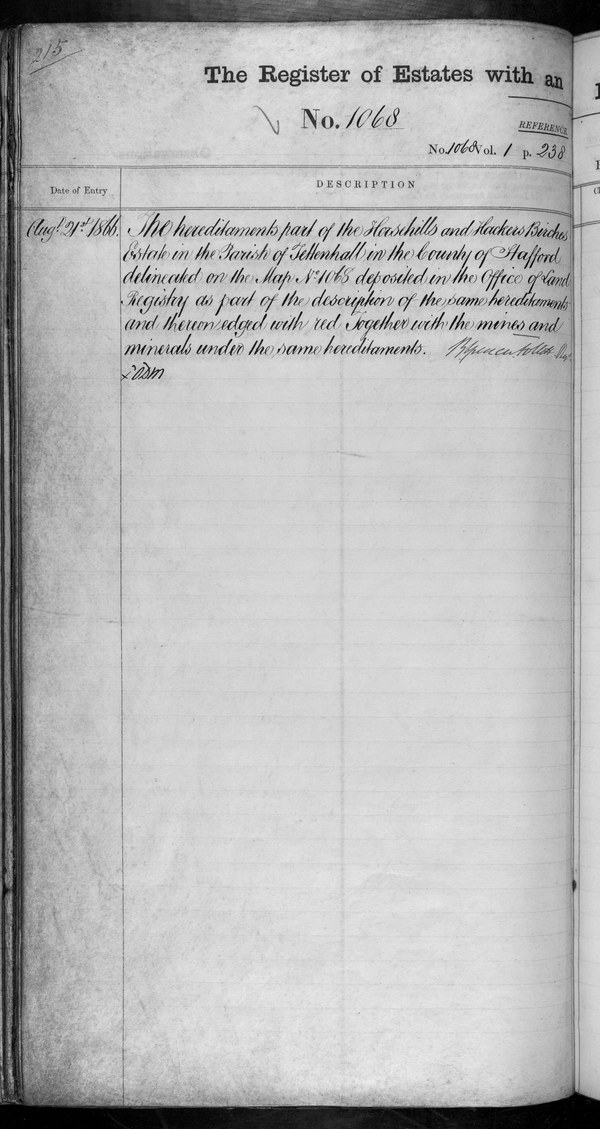 215
The Register of Estates with an
No. 1068
REFERENCE.
No. 1068 Vol. 1 p. 238
Date of Entry
DESCRIPTION
Augt. 21st 1866.
The hereditaments part of the Horsehills and Hackers Birches
Estate in the Parish of Tettenhall in the County of Stafford
delineated on the Map No. 1068 deposited in the Office of Land
Registry as part of the description of the same hereditaments
and thereon edged with red Together with the mines and
minerals under the same hereditaments.